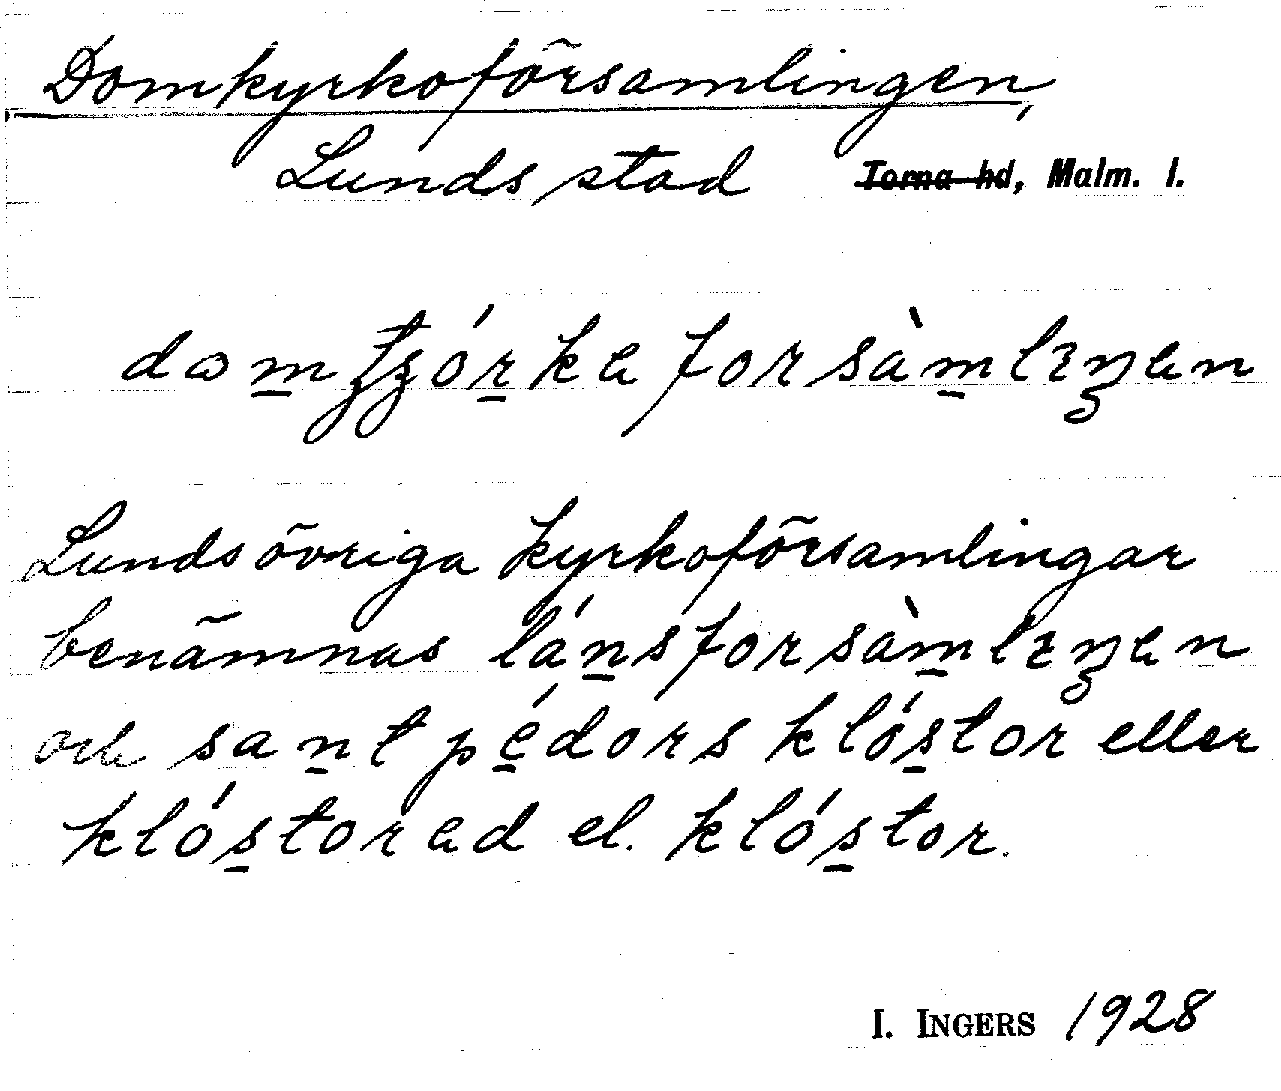 Domkyrkoförsamlingen,
Lunds stad Torna hd, Malm. l.
domtȷ́órkeforsàmlıŋen
Lunds övriga kyrkoförsamlingar
benämnas lánsforsàmlıŋen
och sant pédors klóstor eller
klóstored el. klóstor.
I. INGERS 1928